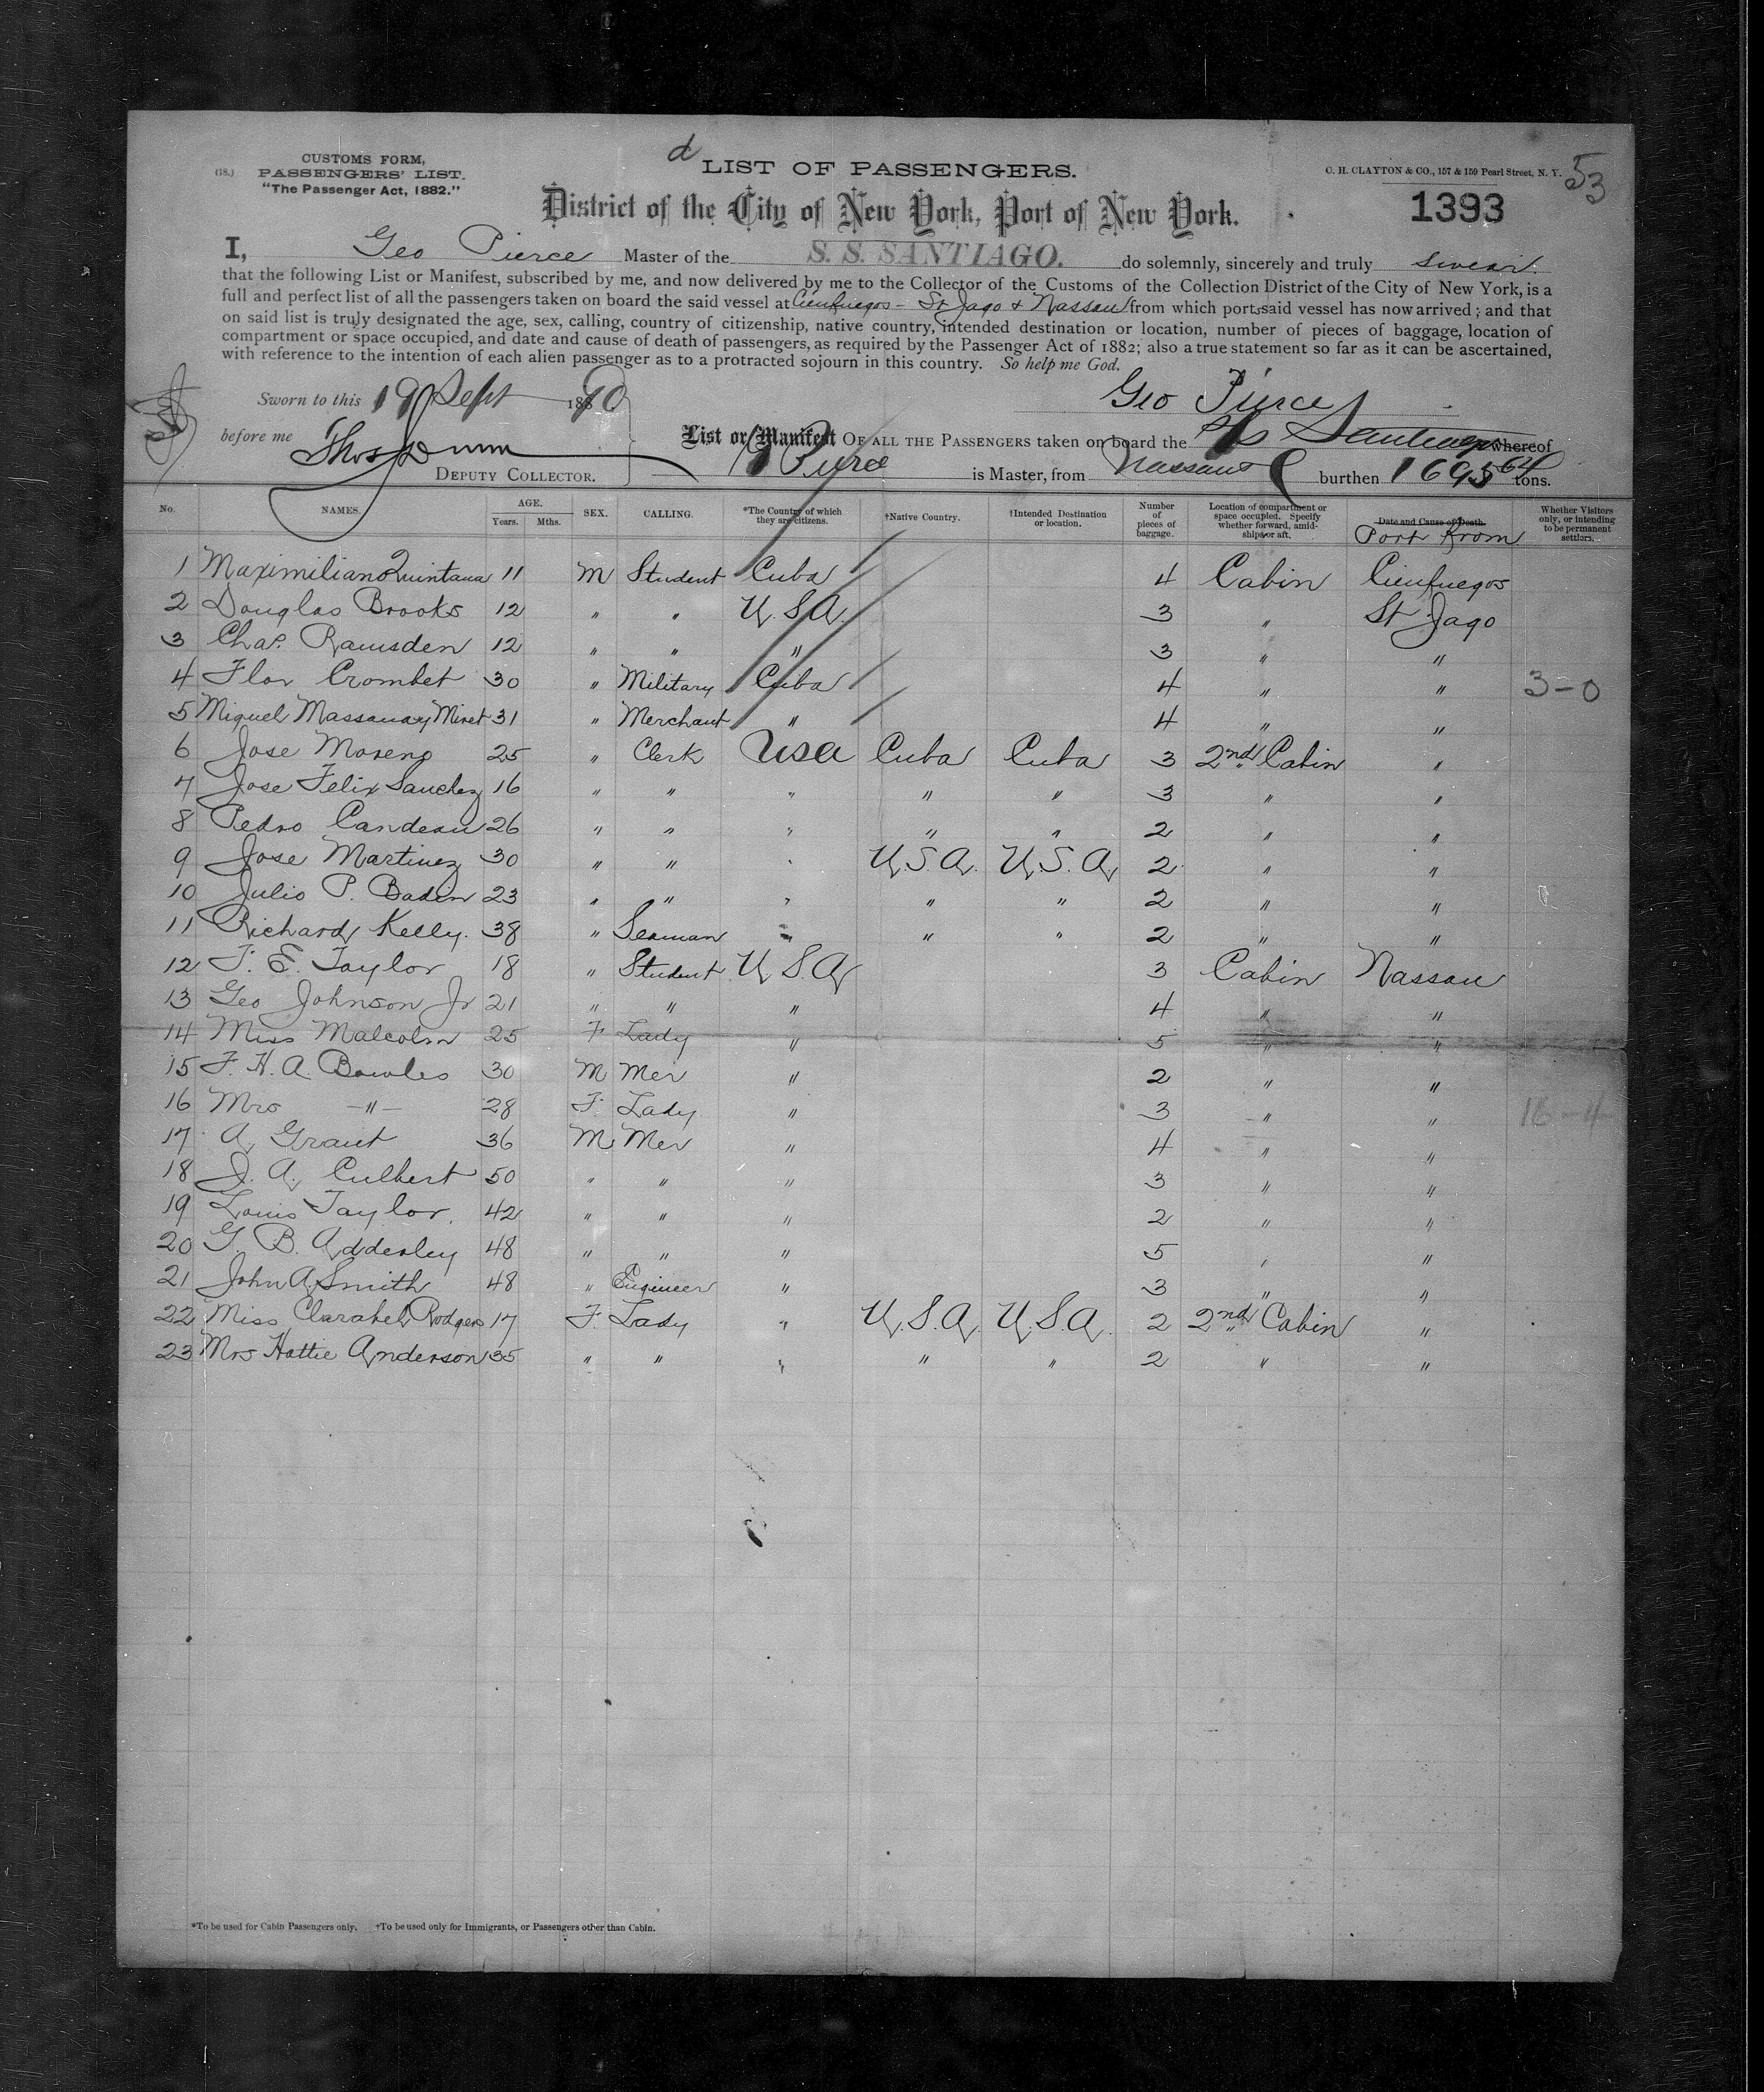 d
CUSTOMS FORM,
(18.) PASSENGERS' LIST.
"The Passenger Act, 1882."
LIST OF PASSENGERS.
C. H. CLAYTON & CO., 157 & 159 Pearl Street, N. Y.
53
District of the City of New York, Port of New York.
1393
I, Geo Pierce Master of the S. S. SANTIAGO. do solemnly, sincerely and truly swear
that the following List or Manifest, subscribed by me, and now delivered by me to the Collector of the Customs of the Collection District of the City of New York, is a
full and perfect list of all the passengers taken on board the said vessel at Cienfuegos - St Jago & Nassau from which ports said vessel has now arrived; and that
on said list is truly designated the age, sex, calling, country of citizenship, native country, intended destination or location, number of pieces of baggage, location of
compartment or space occupied, and date and cause of death of passengers, as required by the Passenger Act of 1882; also a true statement so far as it can be ascertained,
with reference to the intention of each alien passenger as to a protracted sojourn in this country. So help me God.
Sworn to this 19 Sept 1890
Geo Pierce
before me Thos Dunn
DEPUTY COLLECTOR.
List or Manifest OF ALL THE PASSENGERS taken on board the S/S Santiago whereof
G Pierce is Master, from Nassau burthen 1695 64 tons.
No. NAMES. AGE. Years. Mths. SEX. CALLING. *The Country of which they are citizens. †Native Country. †Intended Destination or location. Number of pieces of baggage. Location of compartment or space occupied. Specify whether forward, amidships or aft. Date and Cause of Death. Port From Whether Visitors only, or intending to be permanent settlers.
1 Maximiliano Quintana 11 M Student Cuba 4 Cabin Cienfuegos
2 Douglas Brooks 12 " " U.S.A. 3 " St Jago
3 Chas. Ramsden 12 " " " 3 " "
4 Flor Crombet 30 " Military Cuba 4 " " 3-0
5 Miguel Massana y Miret 31 " Merchant " 4 " "
6 Jose Moreno 25 " Clerk USA Cuba Cuba 3 2nd Cabin "
7 Jose Felix Sanchez 16 " " " " " 3 " "
8 Pedro Candeau 26 " " " " " 2 " "
9 Jose Martinez 30 " " " U.S.A. U.S.A. 2 " "
10 Julio P. Badin 23 " " " " " 2 " "
11 Richard Kelly. 38 " Seaman " " " 2 " "
12 T. E. Taylor 18 " Student U.S.A. 3 Cabin Nassau
13 Geo Johnson Jr 21 " " " 4 " "
14 Miss Malcolm 25 F Lady " 5 " "
15 F. H. A. Bowles 30 M Mer " 2 " "
16 Mrs -"- 28 F. Lady " 3 " " 16-4
17 A. Grant 36 M Mer " 4 " "
18 J. A. Culbert 50 " " " 3 " "
19 Louis Taylor. 42 " " " 2 " "
20 G. B. Adderley 48 " " " 5 " "
21 John A. Smith 48 " Engineer " 3 " "
22 Miss Clarabel Rodgers 17 F. Lady " U.S.A. U.S.A. 2 2nd Cabin "
23 Mrs Hattie Anderson 35 " " " " " 2 " "
*To be used for Cabin Passengers only. †To be used only for Immigrants, or Passengers other than Cabin.